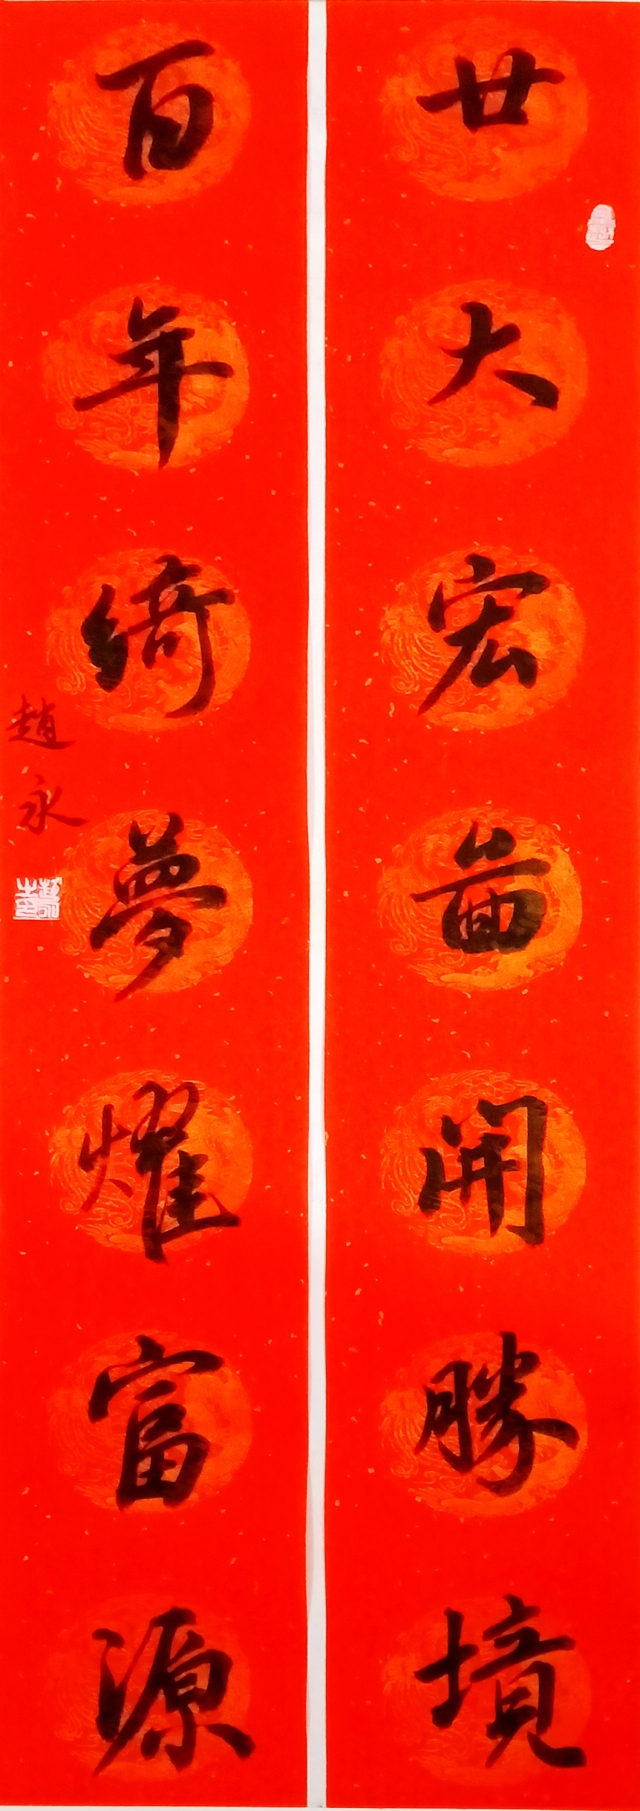 廿大宏啚開勝境
百年綺夢耀富源
趙永